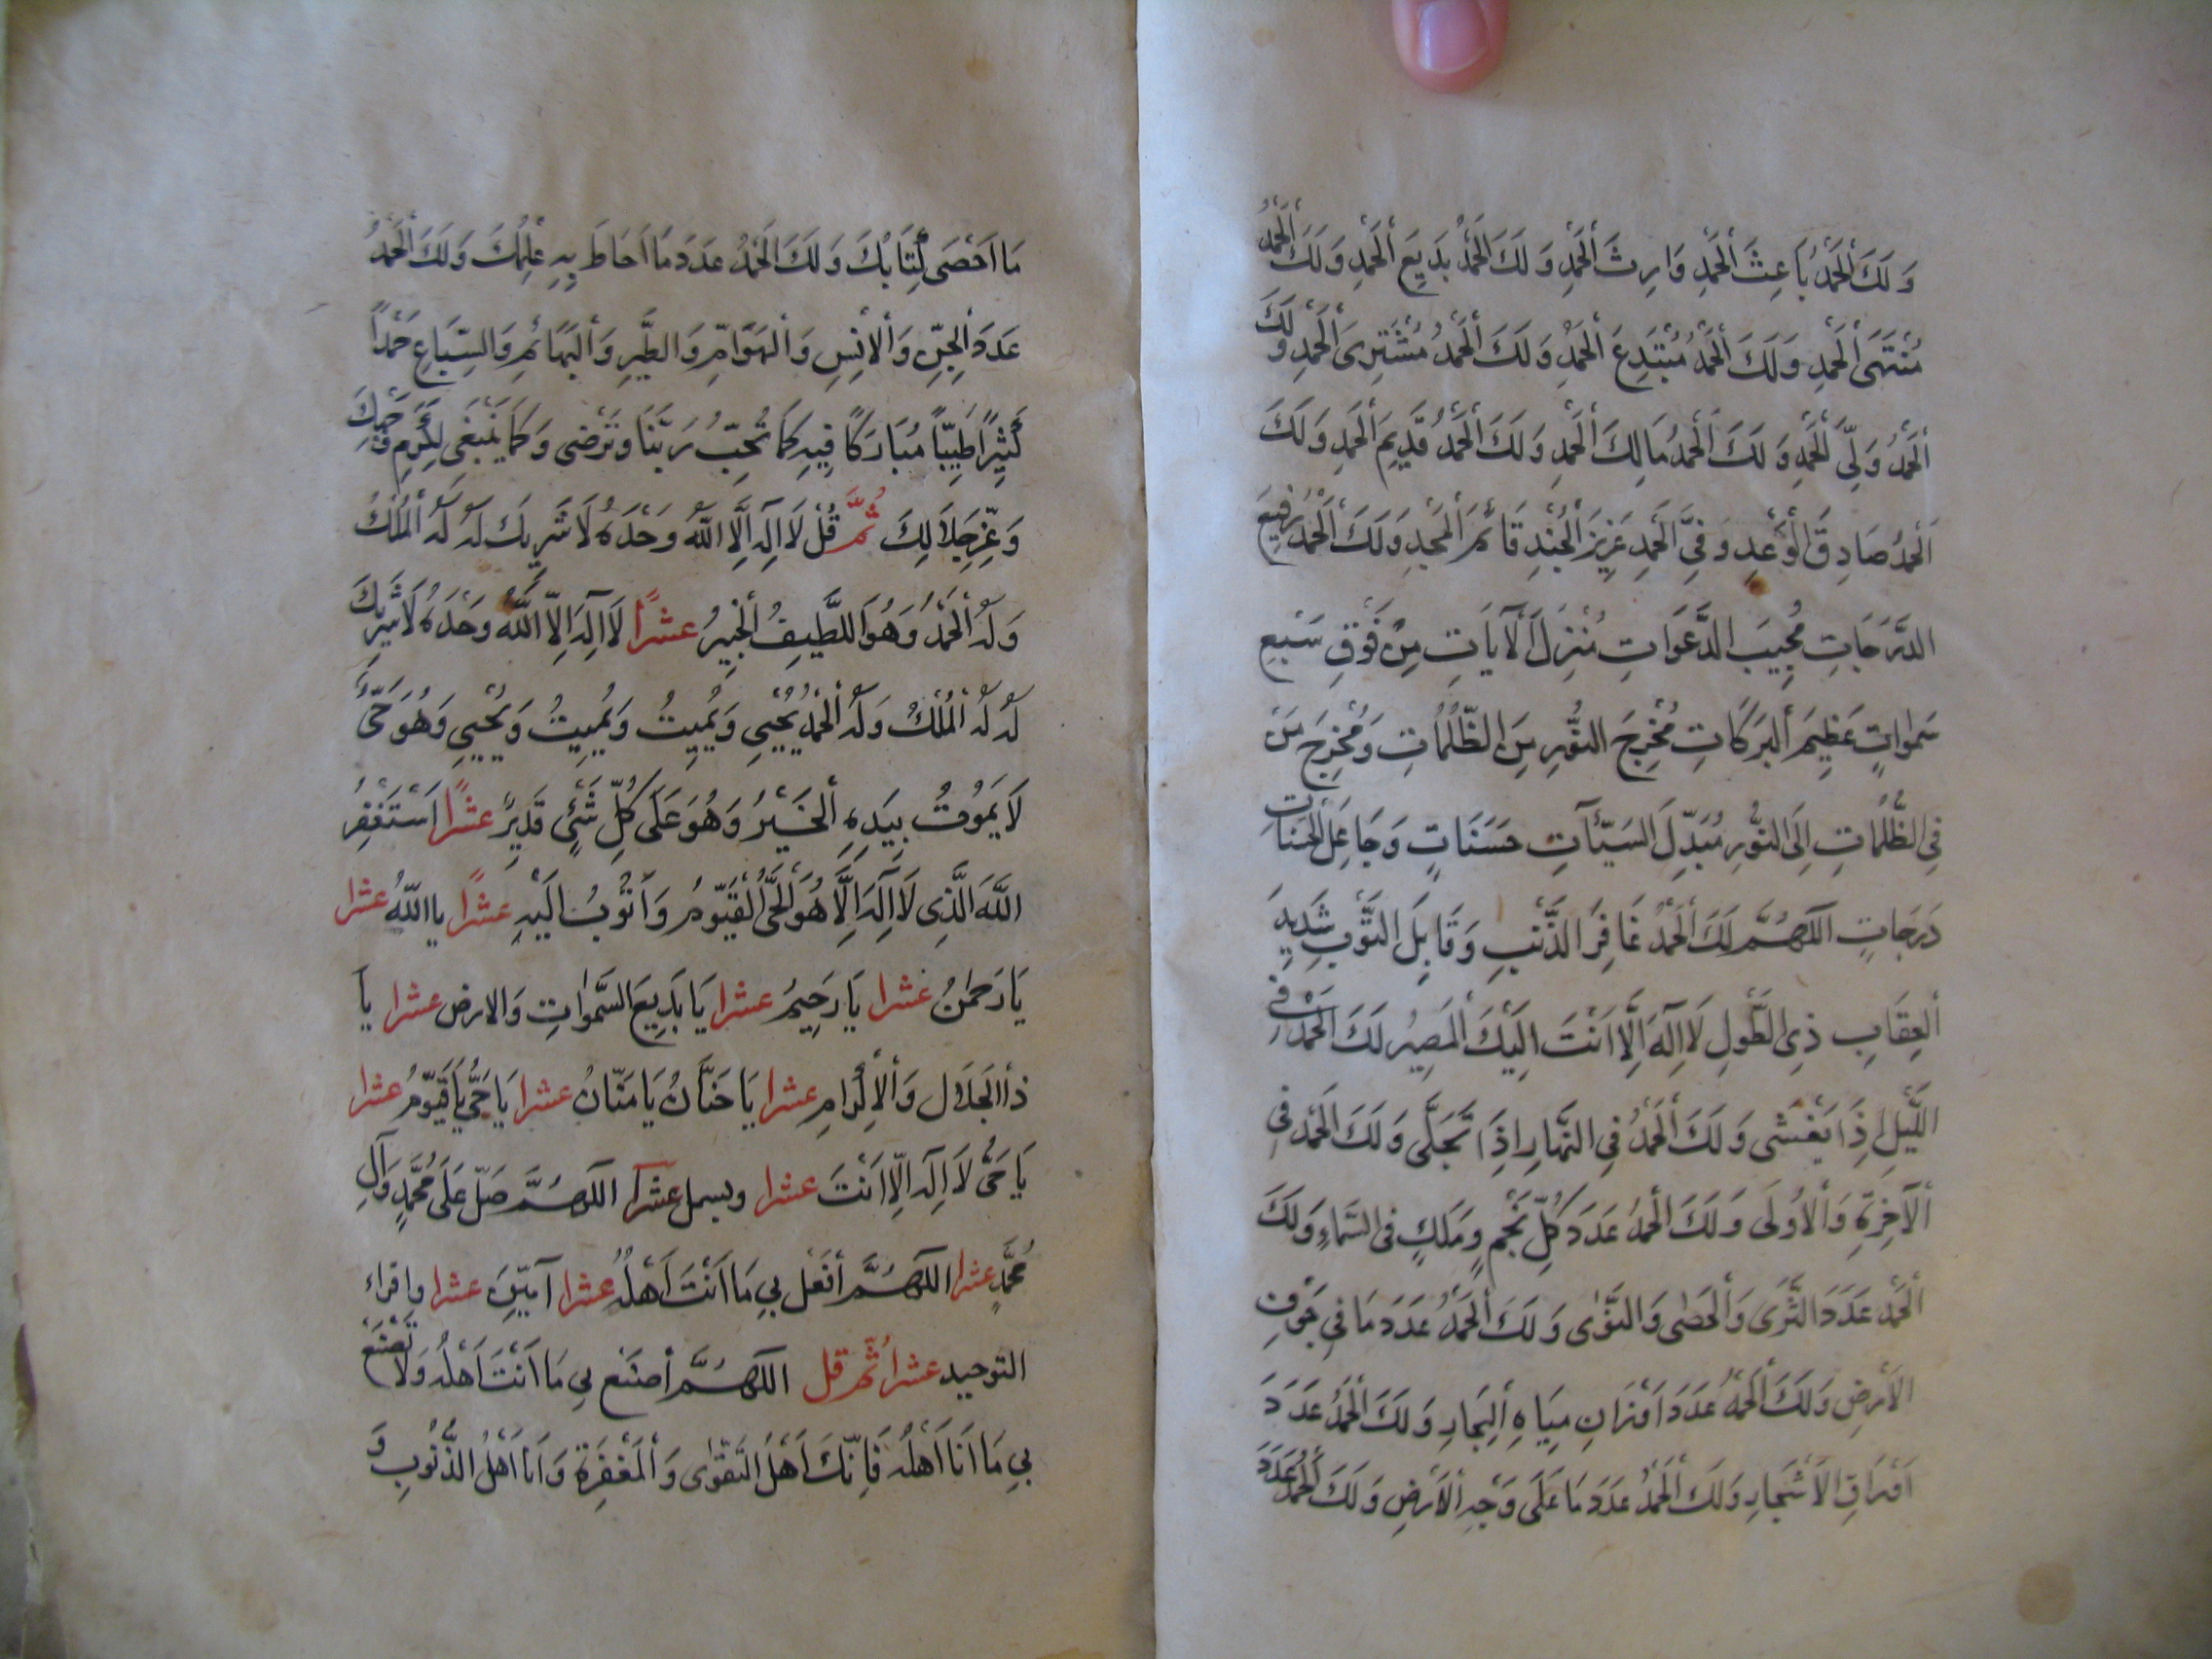 وَلَكَ الْحَمْدُ بَاعِثَ الْحَمْدِ وَارِثَ الْحَمْدِ وَلَكَ الْحَمْدُ بَدِيعَ الْحَمْدِ وَلَكَ الْحَمْدُ
مُنْتَهَى الْحَمْدِ وَلَكَ الْحَمْدُ مُبْتَدِعَ الْحَمْدِ وَلَكَ الْحَمْدُ مُشْتَرِىَ الْحَمْدِ وَلَكَ
الْحَمْدُ وَلِىَّ الْحَمْدِ وَلَكَ الْحَمْدُ مَالِكَ الْحَمْدِ وَلَكَ الْحَمْدُ قَدِيمَ الْحَمْدِ وَلَكَ
الْحَمْدُ صَادِقَ الْوَعْدِ وَفِىَّ الْحَمْدِ عَزِيزَ الْجُنْدِ قَائِمَ الْمَجْدِ وَلَكَ الْحَمْدُ رَفِيعَ
الدَّرَجَاتِ مُجِيبَ الدَّعَوَاتِ مُنْزِلَ الْآيَاتِ مِنْ فَوْقِ سَبْعِ
سَمٰوَاتٍ عَظِيمَ الْبَرَكَاتِ مُخْرِجَ النُّورِ مِنَ الظُّلُمَاتِ وَمُخْرِجَ مَنْ
فِى الظُّلُمَاتِ اِلَى النُّورِ مُبَدِّلَ السَيِّئَآتِ حَسَنَاتٍ وَجَاعِلَ الْحَسَنَاتِ
دَرَجَاتٍ اللّٰهُمَّ لَكَ الْحَمْدُ غَافِرَ الذَّنْبِ وَقَابِلَ التَّوْبِ شَدِيدِ
الْعِقَابِ ذِى الطَّوْلِ لَا اِلٰهَ اِلَّا اَنْتَ اِلَيْكَ الْمَصِيرُ لَكَ الْحَمْدُ فِى
اللَّيْلِ اِذَا يَغْشَى وَلَكَ الْحَمْدُ فِي النَّهَارِ اِذَا تَجَلَّى وَلَكَ الْحَمْدُ فِى
الْآخِرَةِ وَالْاُولَى وَلَكَ الْحَمْدُ عَدَدَ كُلِّ نَجْمٍ وَمَلَكٍ فِى السَّمَاءِ وَلَكَ
الْحَمْدُ عَدَدَ الثَّرَى وَالْحَصٰى وَالنَّوٰى وَلَكَ الْحَمْدُ عَدَدَ مَا فِي جَوْفِ
الْاَرْضِ وَلَكَ الْحَمْدُ عَدَدَ اَوْزَانِ مِيَاهِ الْبِحَارِ وَلَكَ الْحَمْدُ عَدَدَ
اَوْرَاقِ الْاَشْجَارِ وَلَكَ الْحَمْدُ عَدَدَ مَا عَلَى وَجْهِ الْاَرْضِ وَلَكَ الْحَمْدُ عَدَدَ
مَا اَحْصَى كِتَابُكَ وَلَكَ الْحَمْدُ عَدَدَ مَا اَحَاطَ بِهِ عِلْمُكَ وَلَكَ الْحَمْدُ
عَدَدَ الْجِنِّ وَالْاِنْسِ وَالْهَوَامِّ وَالطَّيْرِ وَالْبَهَائِمِ وَالسِّبَاعِ حَمْداً
كَثِيْراً طَيِّباً مُبَارَكاً فِيهِ كَمَا تُحِبُّ رَبَّنَا وَتَرْضى وَكَمَا يَنْبَغِى لِكَرَمِ وَجْهِكَ
وَعِزِّ جَلَالِكَ ثُمَّ قُلْ لَا اِلٰهَ اِلَّا اللّٰهُ وَحْدَهُ لَا شَرِيكَ لَهُ لَهُ الْمُلْكُ
وَلَهُ الْحَمْدُ وَهُوَ اللَّطِيفُ الْخَبِيْرُ عشراً لَا اِلٰهَ اِلَّا اللّٰهُ وَحْدَهُ لَا شَرِيْكَ
لَهُ لَهُ الْمُلْكُ وَلَهُ الْحَمْدُ يُحْيِي وَيُمِيتُ وَيُمِيتُ وَيُحْيِي وَهُوَ حَىٌّ
لَا يَمُوتُ بِيَدِهِ الْخَيْرُ وَهُوَ عَلَى كُلِّ شَئٍ قَدِيْرٌ عشراً اَسْتَغْفِرُ
اللّٰهَ الَّذِى لَا اِلٰهَ اِلَّا هُوَ الْحَىُّ الْقَيّوُمُ وَاَتُوبُ اِلَيْهِ عشراً يا اللّٰهُ عشرا
يَا رَحْمٰنُ عشرا يَا رَحِيمُ عشرا يَا بَدِيعَ السَّمٰوَاتِ وَالارض عشرا يا
ذَا الْجَلَال وَالْاِكْرَامِ عشرا يَا حَنَّانُ يَا مَنّانُ عشرا يَا حَىُّ يَا قَيّوُمُ عشرا
يَا حَىُّ لَا اِلٰهَ اِلَّا اَنْتَ عشرا وبسمل عشرا اللّٰهُمَّ صَلِّ عَلَى مُحَمَّدٍ وَآلِ
مُحَمَّدٍ عشرا اللّٰهُمَّ افْعَلْ بِي مَا اَنْتَ اَهْلُهُ عشرا آمِيْنَ عشرا واقراء
التوحيد عشرا ثُمَّ قل اللّٰهُمَّ اصْنَعْ بِي مَا اَنْتَ اَهْلُهُ وَلَا تَصْنَعْ
بِي مَا اَنَا اَهْلُهُ فَاِنَّكَ اَهْلُ التَّقْوٰى وَالْمَغْفِرَةِ وَاَنَا اَهْلُ الذُّنُوبِ وَ